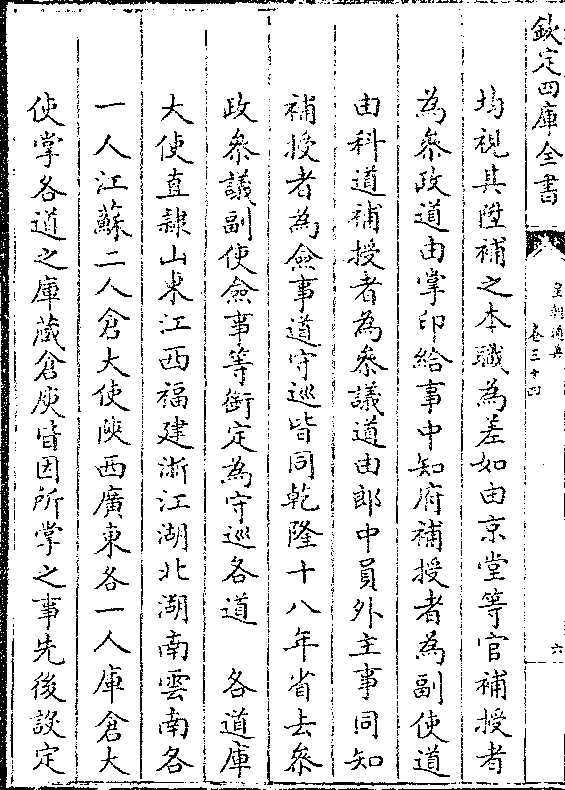 欽定四庫全書
皇朝通典
卷三十四
六
均視其陞補之本職為差如由京堂等官補授者
為參政道由掌印給事中知府補授者為副使道
由科道補授者為參議道由郎中員外主事同知
補授者為僉事道守巡皆同乾隆十八年省去參
政參議副使僉事等銜定為守巡各道　各道庫
大使直隷山東江西福建浙江湖北湖南雲南各
一人江蘇二人倉大使陜西廣東各一人庫倉大
使掌各道之庫藏倉庾皆因所掌之事先後設定